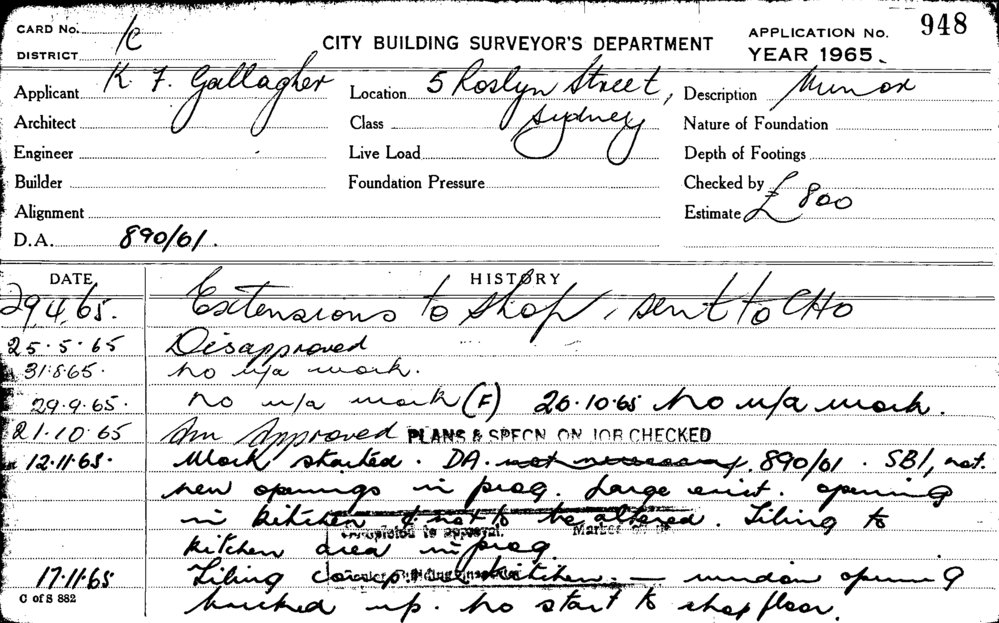 CARD No. 1c
DISTRICT
CITY BUILDING SURVEYOR'S DEPARTMENT
APPLICATION No. 948
YEAR 1965.
Applicant K F. Gallagher
Location 5 Roslyn Street,
Sydney
Description Minor
Architect
Class
Nature of Foundation
Engineer
Live Load
Depth of Footings
Builder
Foundation Pressure
Checked by
Alignment
Estimate £ 800
D.A. 890/61.
DATE HISTORY
29.4.65. Extensions to shop, sent to CHO
25.5.65 Disapproved
31.8.65. No u/a work.
29.9.65. No u/a work (F) 26.10.65 No u/a work.
21.10.65 Am Approved PLANS & SPECN ON JOB CHECKED
12.11.65. Work started. DA. not necessary. 890/61. SB1, nat.
new openings in prog. Large exist. opening
in kitchen not to be altered. Tiling to
kitchen area in prog.
17.11.65 Tiling comp. kitchen. — window opening
bricked up. No start to shop floor.
C of S 882